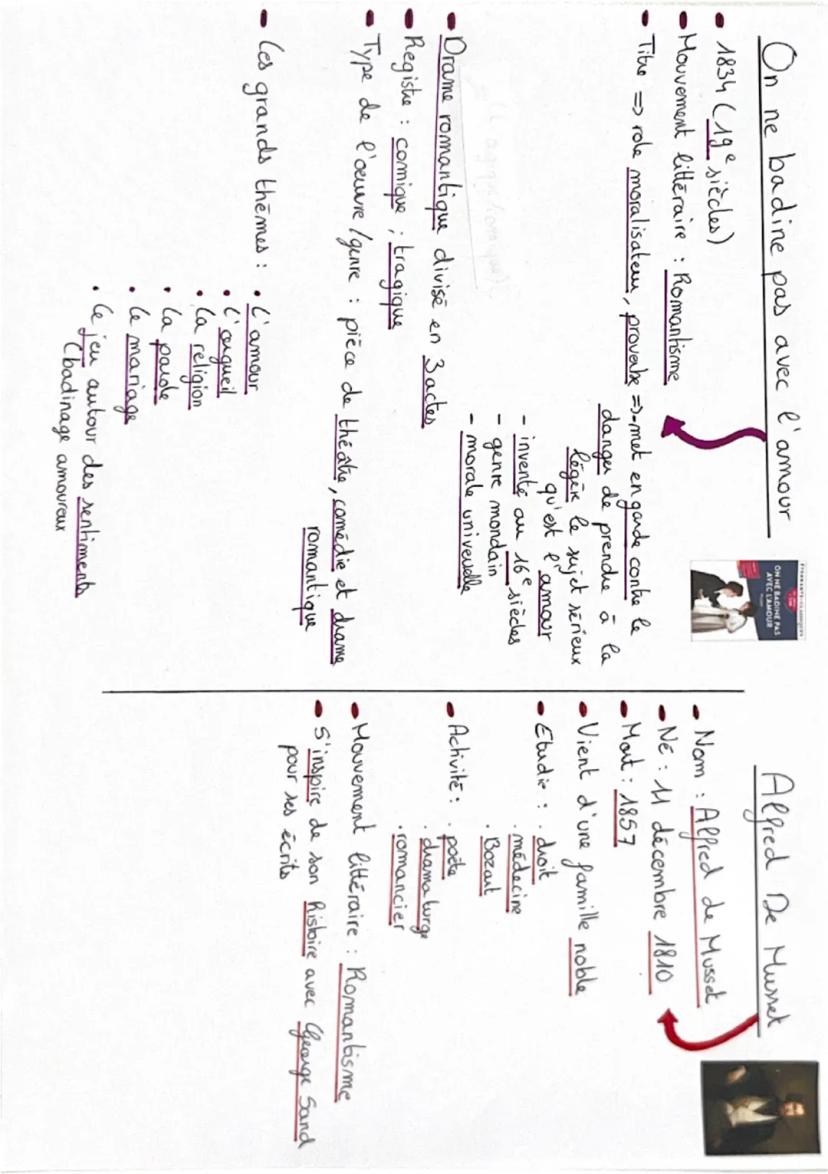 On ne badine pas avec l'amour
• 1834 (19e siècles)
• Mouvement littéraire : Romantisme
• Titre => role moralisateur, proverbe => met en garde contre le
danger de prendre à la
légère le sujet sérieux
qu'est l'amour
- inventé au 16e siècles
- genre mondain
- morale universelle
• Drame romantique divisé en 3 actes
• Registre : comique ; tragique
• Type de l'œuvre / genre : pièce de théâtre, comédie et drame
romantique
• Les grands thèmes : • l'amour
• l'orgueil
• la religion
• la parole
• le mariage
• le jeu autour des sentiments
(badinage amoureux
ON NE BADINE PAS
AVEC L'AMOUR
Alfred De Musset
• Nom : Alfred de Musset
• Né : 11 décembre 1810
• Mort : 1857
• Vient d'une famille noble
• Etudie : . droit
. médecine
. Bozart
• Activité : . poète
. dramaturge
. romancier
• Mouvement littéraire : Romantisme
• S'inspire de son histoire avec George Sand
pour ses écrits